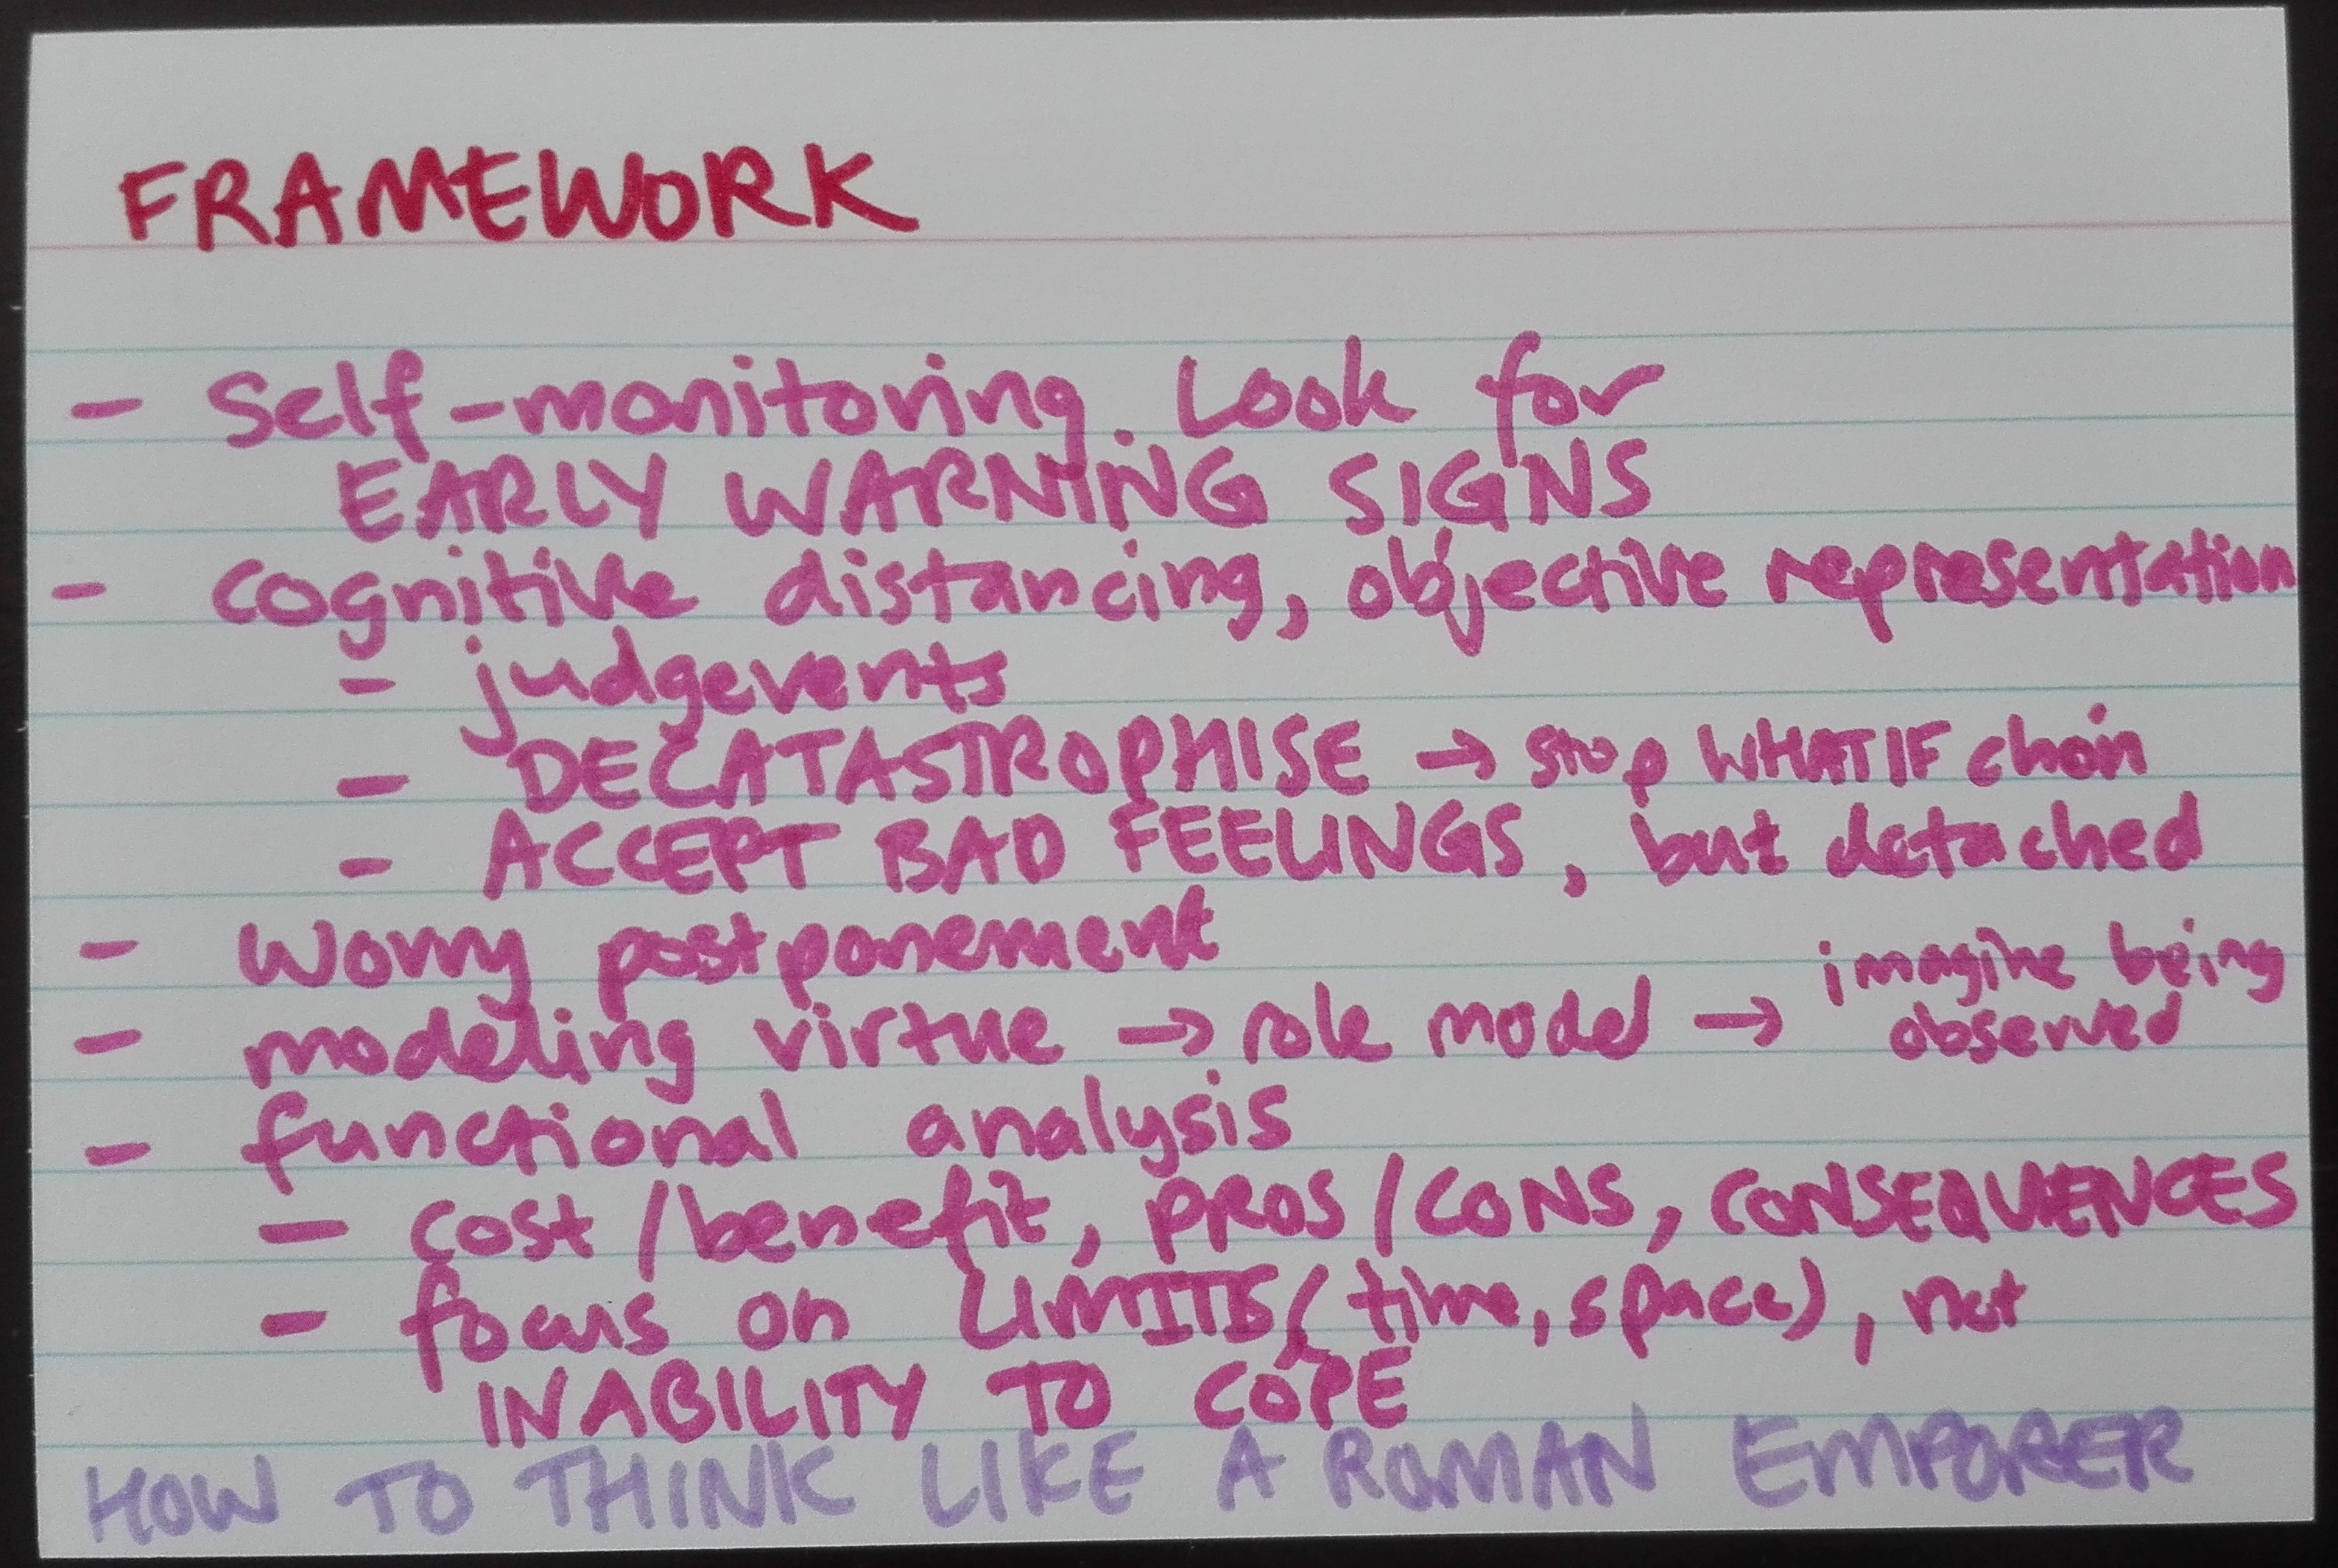 FRAMEWORK
- Self-monitoring. Look for
EARLY WARNING SIGNS
- cognitive distancing, objective representation
- judgevents
- DECATASTROPHISE → stop WHAT IF chain
- ACCEPT BAD FEELINGS, but detached
- Worry postponement
- modeling virtue → role model → imagine being observed
- functional analysis
- cost/benefit, PROS/CONS, CONSEQUENCES
- focus on LIMITS (time, space), not
INABILITY TO COPE
HOW TO THINK LIKE A ROMAN EMPORER